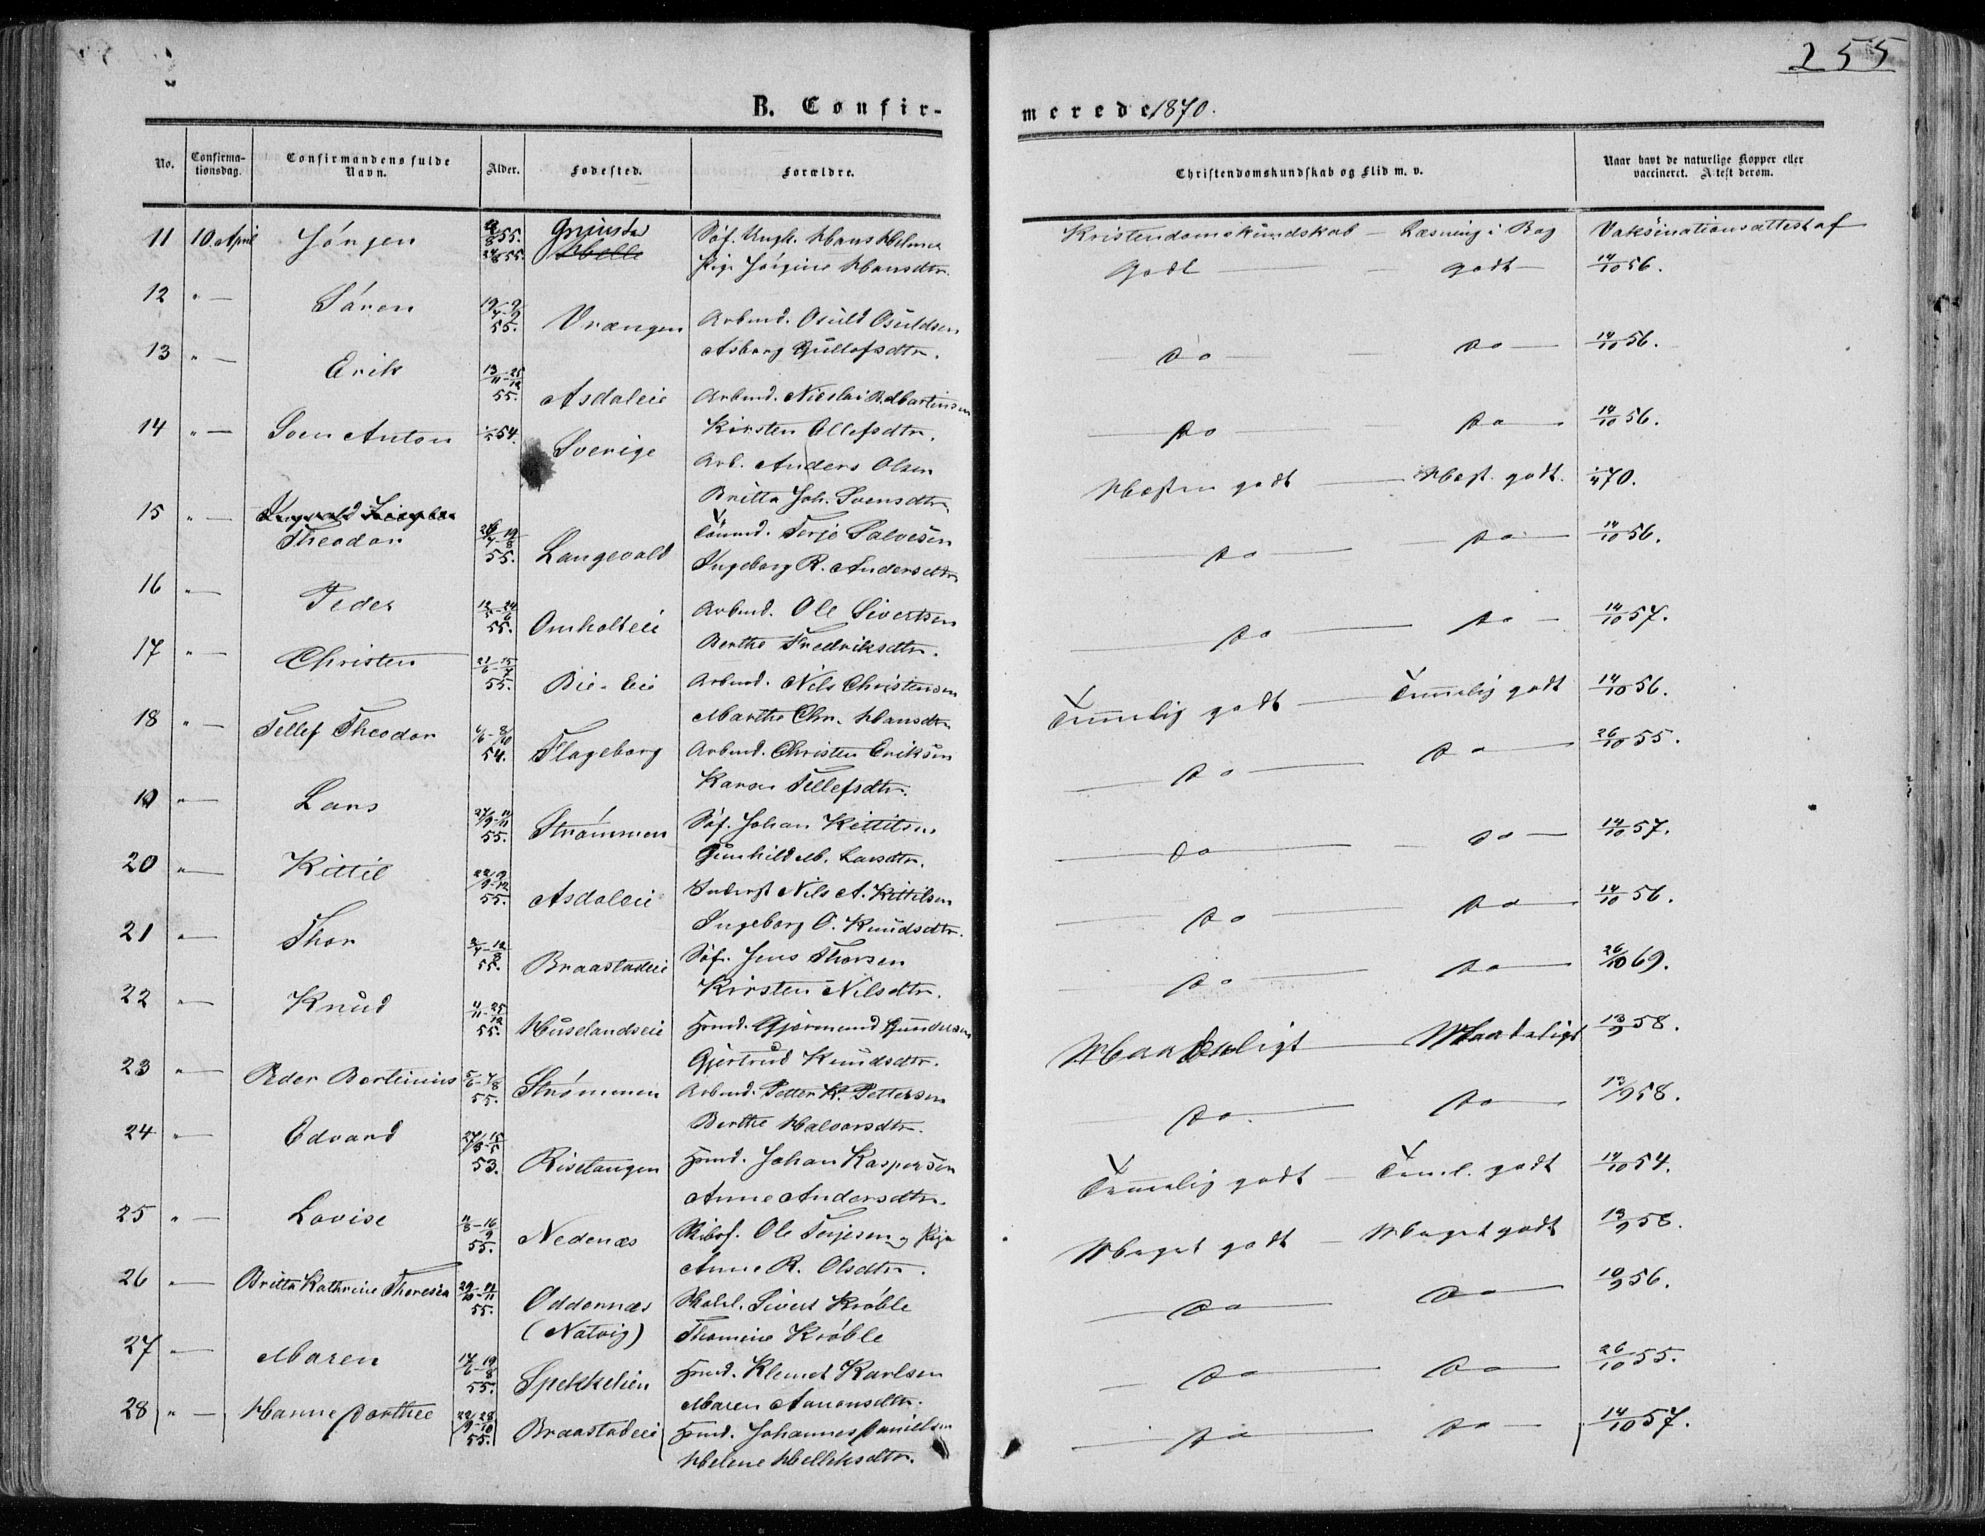 255
B. Confir-
merede 1870.
No.
Confirma-
tionsdag.
Confirmandens fulde
Navn.
Alder.
Fødested.
Forældre.
Christendomskundskab og Flid m. v.
Naar havt de naturlige Kopper eller
vaccineret. Attest derom.
11 10 April Jörgen 55. Grimstad Söf. Ungk. Hans Helma
24/8 55. Helle Pige Jörgine Hansdtr.
Kristendomskundskab — Læsning i Bog Vaksinationsattest af
Godt — godt — 14/10 56.
12 " — Sören 19/7-9/9 55. Vrængen Arbmd. Osuld Osuldsen
Asborg Gullofsdtr.
do — do — 14/10 56.
13 " — Erik 13/11-25/12 55. Asdaleie Arbmd. Nicolai B. Martinsen
Kirsten Ellefsdtr.
do — do — 14/10 56.
14 " — Sven Anton 54. Sverige Arb. Anders Olsen
Britta Joh. Svensdtr.
Næsten godt — Næst. godt. 70.
15 " — Theodor 55. Langevold Tömmd. Terje Salvesen
Ingeborg R. Andersdtr.
do — do — 14/10 56.
16 " — Peder 55. Omholteie Arbmd. Ole Sivertsen
Berthe Fredriksdtr.
do — do — 14/10 57.
17 " — Christen 21/6-15/7 55. Bie-Eie Arbmd. Nils Christensen
Marthe Chr. Hansdtr.
Temmelig godt — Temmelig godt 14/10 56.
18 " — Tellef Theodor 54. Flageborg Arbmd. Christen Eriksen
Karen Tellefsdtr.
do — do — 26/10 55.
19 " — Lars 27/9-11/11 55. Strömmen Söf. Johan Kittilsen
Gunhild M. Larsdtr.
do — do — 14/10 57.
20 " — Kittil 22/9-9/12 55. Asdaleie Inderst Nils A. Kittilsen
Ingeborg O. Knudsdtr.
do — do — 14/10 56.
21 " — Thor 55. Braastadeie Söf. Jens Thorsen
Kirsten Nilsdtr.
do — do — 26/10 69.
22 " — Knud 4/11-25/12 55. Huselandseie Hmd. Gjermund Gundersen
Gjertrud Knudsdtr.
Maadeligt — Maadeligt 13/9 58.
23 " — Peder Bertinius 5/6-7/8 55. Strømmen Arbmd. Petter K. Pettersen
Berthe Halvorsdtr.
do — do — 13/9 58.
24 " — Edvard 27/3-15/5 53. Risetangen Hmd. Johan Kaspersen
Anne Andersdtr.
Temmelig godt — Teml. godt 14/10 54.
25 " — Lovise 11/8-16/9 55. Nedenæs Skibsf. Ole Terjesen og Pige
Anne R. Olsdtr.
Meget godt — Meget godt 13/9 58.
26 " — Britta Kathrine Theresia 29/10-11/11 55. Oddernæs Sivert Kröble
(Natvig) Thomine Kröble
do — do — 10/9 56.
27 " — Maren 14/6-19/8 55. Spekkelien Hmd. Klemet Karlsen
Maren Aanonsdtr.
do — do — 26/10 55.
28 " — Hanne Dorthee 22/9-28/10 55. Braastadeie Hmd. Johannes Danielsen
Helene Helliksdtr.
do — do — 14/10 57.